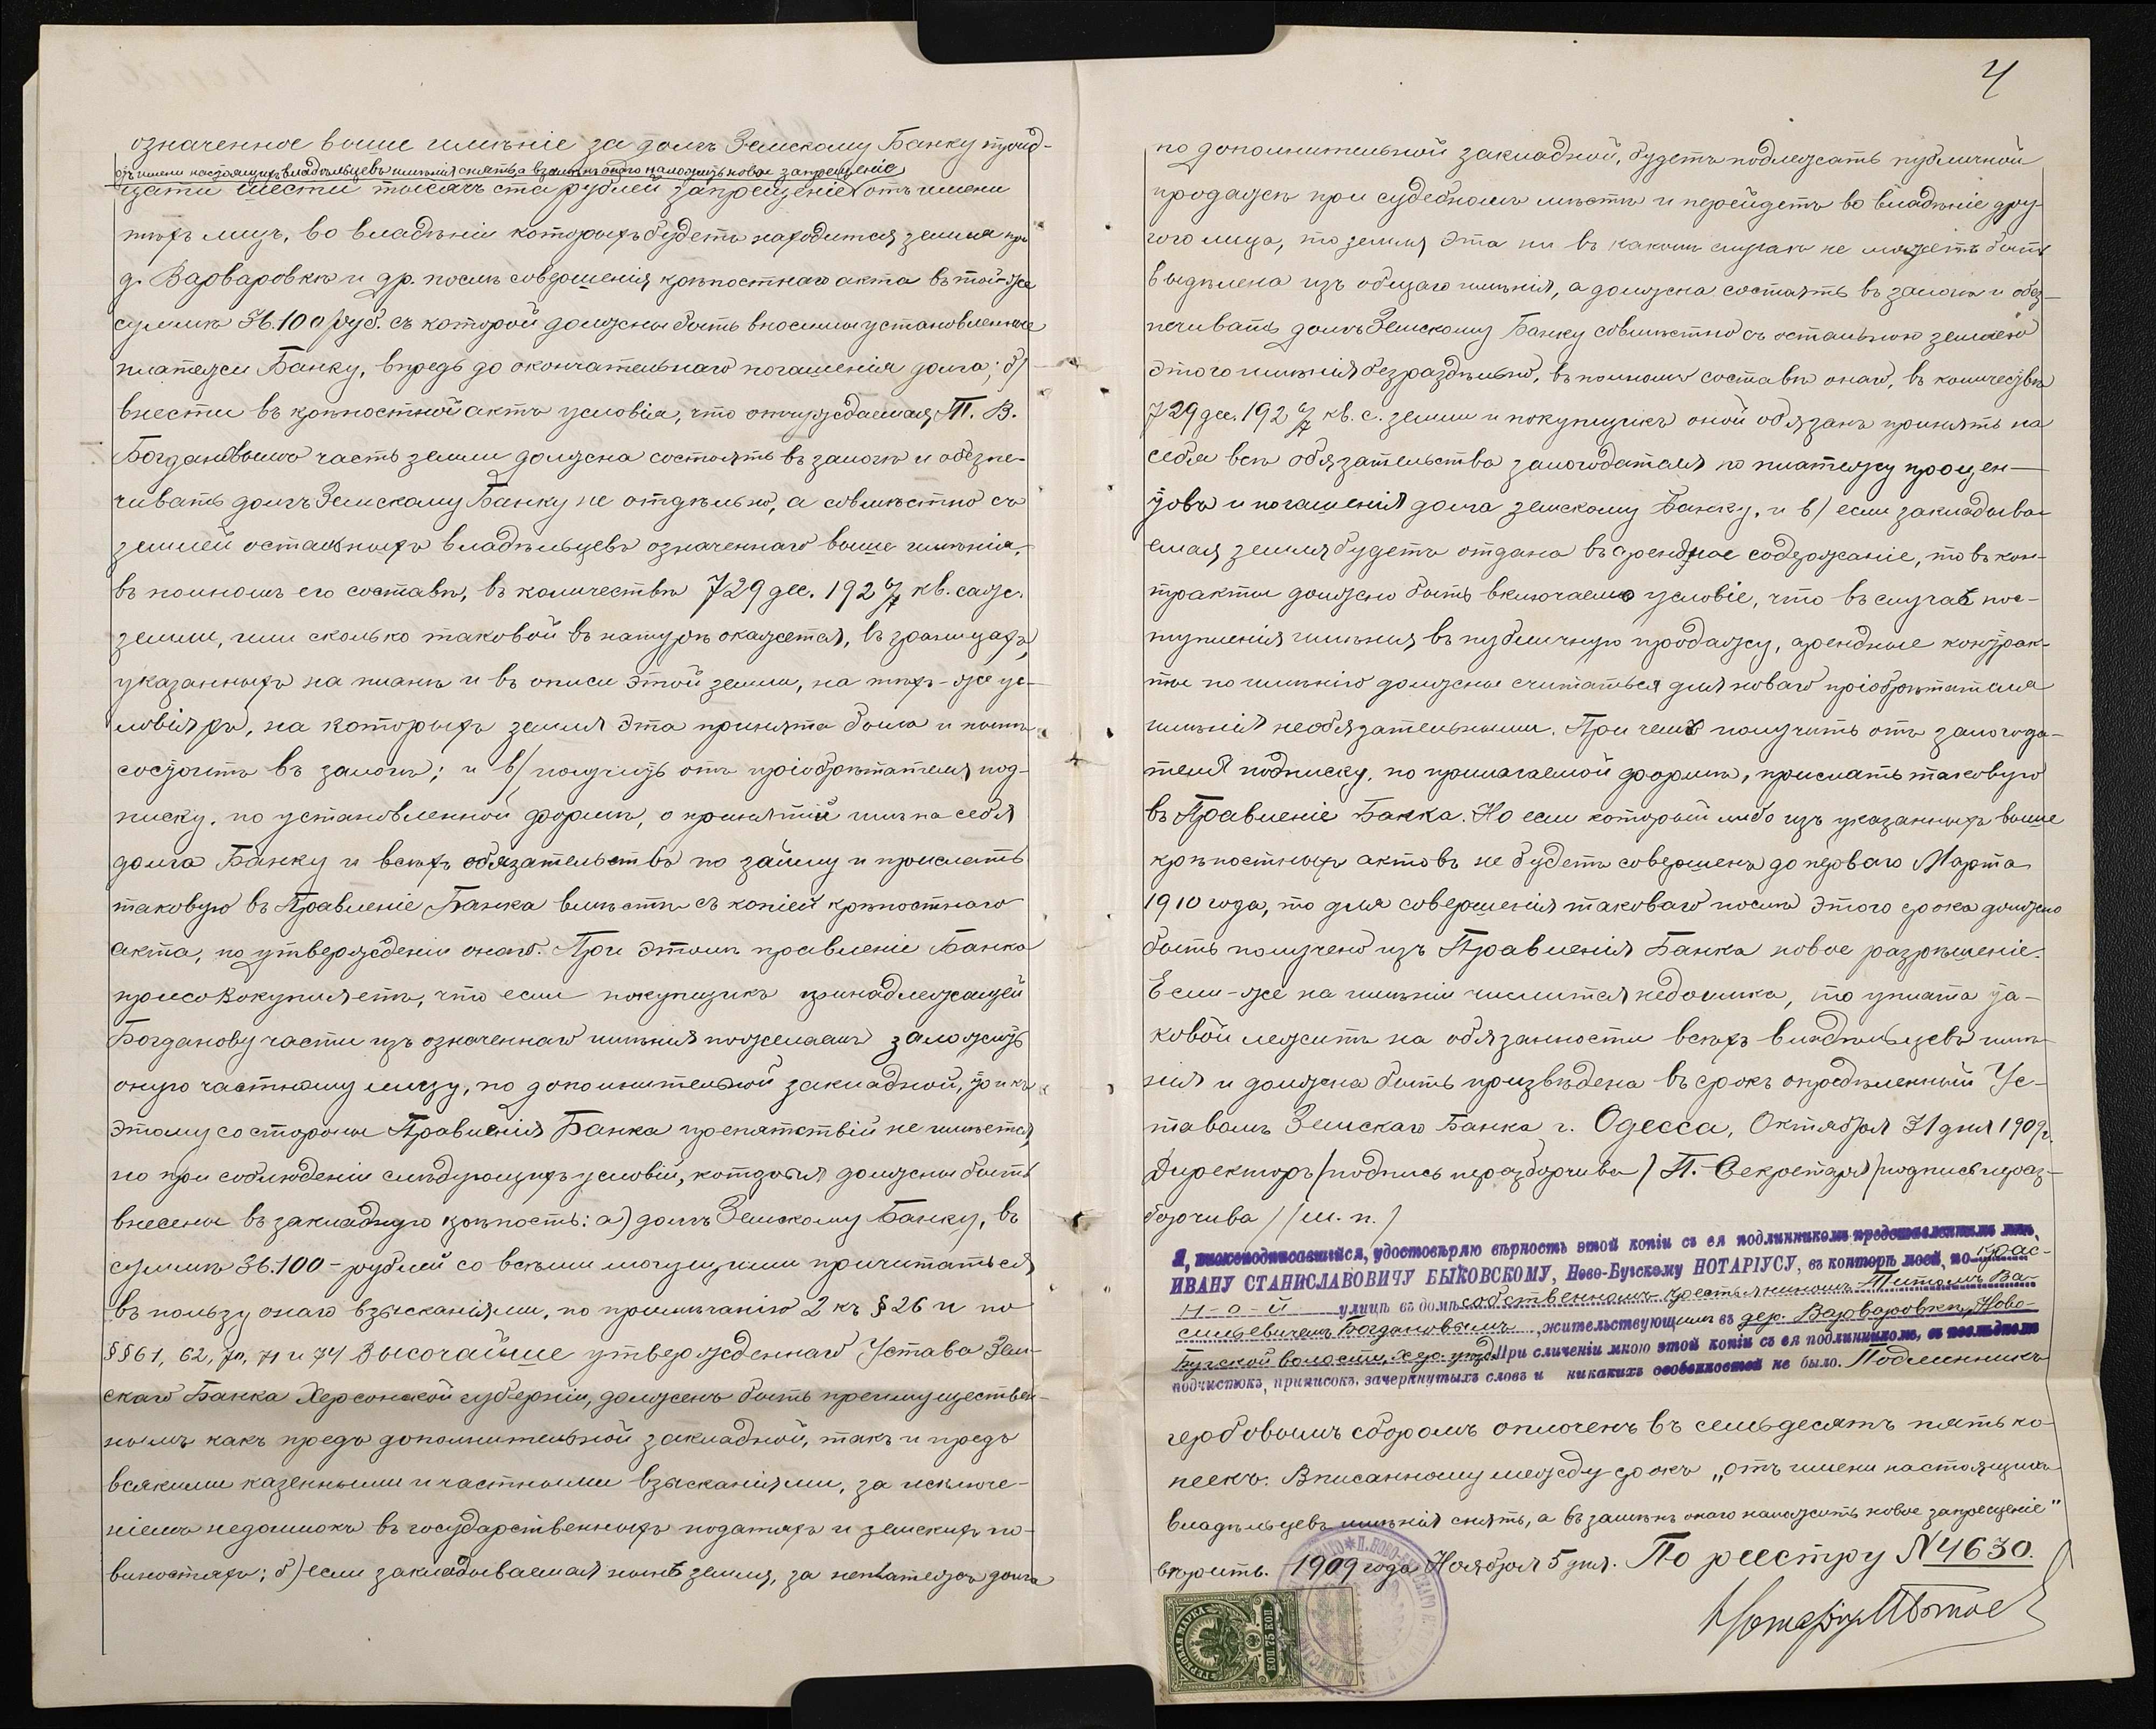 означенное выше имѣніе за долгъ Земскому Банку трид-
отъ имени настоящихъ владѣльцевъ имѣнія снять, а взамѣнъ онаго наложить новое запрещеніе
цати шести тысячъ ста рублей запрещеніе отъ имени
тѣхъ лицъ, во владѣніи которыхъ будетъ находится земля при
д. Варваровкѣ и др. послѣ совершенія крѣпостнаго акта въ той-же
суммѣ 36.100 руб. съ которой должны быть вносимы установленные
платежи Банку, впредь до окончательнаго погашенія долга; б)
внести въ крѣпостной актъ условія, что отчуждаемая Т. В.
Богдановымъ часть земли должна состоять въ залогѣ и обезпе-
чивать долгъ Земскому Банку не отдѣльно, а совмѣстно съ
землей остальныхъ владѣльцевъ означеннаго выше имѣнія,
въ полномъ его составѣ, въ количествѣ 729 дес. 192 6/7 кв. саж.
земли, или сколько таковой въ натурѣ окажется, въ границахъ,
указанныхъ на планѣ и въ описи этой земли, на тѣхъ-же ус-
ловіяхъ, на которыхъ земля эта принята была и нынѣ
состоитъ въ залогѣ; и в) получить отъ пріобрѣтателя под-
писку, по установленной формѣ, о принятіи имъ на себя
долга Банку и всѣхъ обязательствъ по займу и прислать
таковую въ Правленіе Банка вмѣстѣ съ копіей крѣпостнаго
акта, по утвержденіи онаго. При этомъ правленіе Банка
присовокупляетъ, что если покупщикъ принадлежащей
Богданову части изъ означеннаго имѣнія пожелаетъ заложить
оную частному лицу, по дополнительной закладной, то и къ
этому со стороны Правленія Банка препятствій не имѣется,
но при соблюденіи слѣдующихъ условій, которыя должны быть
внесены въ закладную крѣпость: а) долгъ Земскому Банку, въ
суммѣ 36.100 - рублей со всѣми могущими причитаться
въ пользу онаго взысканіями, по примѣчанію 2 къ § 26 и по
§§ 61, 62, 70, 71 и 74 Высочайше утвержденнаго Устава Зем-
скаго Банка Херсонской губерніи, долженъ быть преимуществен-
нымъ какъ предъ дополнительной закладной, такъ и предъ
всякими казенными и частными взысканіями, за исключе-
ніемъ недоимокъ въ государственныхъ податяхъ и земскихъ по-
винностяхъ; б) если закладываемая нынѣ земля, за неплатежъ долга
4
по дополнительной закладной, будетъ подлежать публичной
продажѣ при судебномъ мѣстѣ и перейдетъ во владѣніе дру-
гого лица, то земля эта ни въ какомъ случаѣ не можетъ быть
выдѣлена изъ общаго имѣнія, а должна состоять въ залогѣ и обез-
печивать долгъ Земскому Банку совмѣстно съ остальною землею
этого имѣнія безраздѣльно, въ полномъ составѣ онаго, въ количествѣ
729 дес. 192 6/7 кв. с. земли и покупщикъ оной обязанъ принять на
себя всѣ обязательства залогодателя по платежу процен-
товъ и погашенія долга земскому Банку, и в) если закладыва
емая земля будетъ отдана въ арендное содержаніе, то въ кон-
тракты должно быть включаемо условіе, что въ случаѣ пос-
тупленія имѣнія въ публичную продажу, арендные контрак-
ты по имѣнію должны считаться для новаго пріобрѣтателя
имѣнія необязательными. При чемъ получить отъ залогода-
теля подписку, по прилагаемой формѣ, прислать таковую
въ Правленіе Банка. Но если который либо изъ указанныхъ выше
крѣпостныхъ актовъ не будетъ совершенъ до перваго Марта
1910 года, то для совершенія таковаго послѣ этого срока должно
быть получено изъ Правленія Банка новое разрѣшеніе.
Если-же на имѣніи числится недоимка, то уплата та-
ковой лежитъ на обязанности всѣхъ владѣльцевъ имѣ-
нія и должна быть произведена въ срокъ опредѣленный Ус-
тавомъ Земскаго Банка г. Одесса, Октября 31 дня 1909 г.
Директоръ /подпись неразборчива/ П.-Секретаря /подпись нераз-
борчива/ /м. п./
Я, нижеподписавшійся, удостовѣряю вѣрность этой копіи съ ея подлинникомъ представленнымъ мнѣ,
ИВАНУ СТАНИСЛАВОВИЧУ БЫКОВСКОМУ, Ново-Бугскому НОТАРІУСУ, въ конторѣ моей, по крас-
н-о-й улицѣ въ домѣ собственномъ крестьяниномъ Титомъ Ва-
сильевичемъ Богдановымъ, жительствующимъ въ дер. Варваровкѣ, Ново-
Бугской волости, Хер. уѣзд. При сличеніи мною этой копіи съ ея подлинникомъ, въ послѣднемъ
подчистокъ, приписокъ, зачеркнутыхъ словъ и никакихъ особенностей не было. Подлинникъ
гербовымъ сборомъ оплоченъ въ семьдесятъ пять ко-
пеекъ. Вписанному между строкъ „отъ имени настоящихъ
владѣльцевъ имѣнія снять, а взамѣнъ онаго наложить новое запрещеніе"
вѣрить. 1909 года Ноября 5 дня. По реестру №4630.
ГЕРБОВАЯ МАРКА
КОП 75 КОП